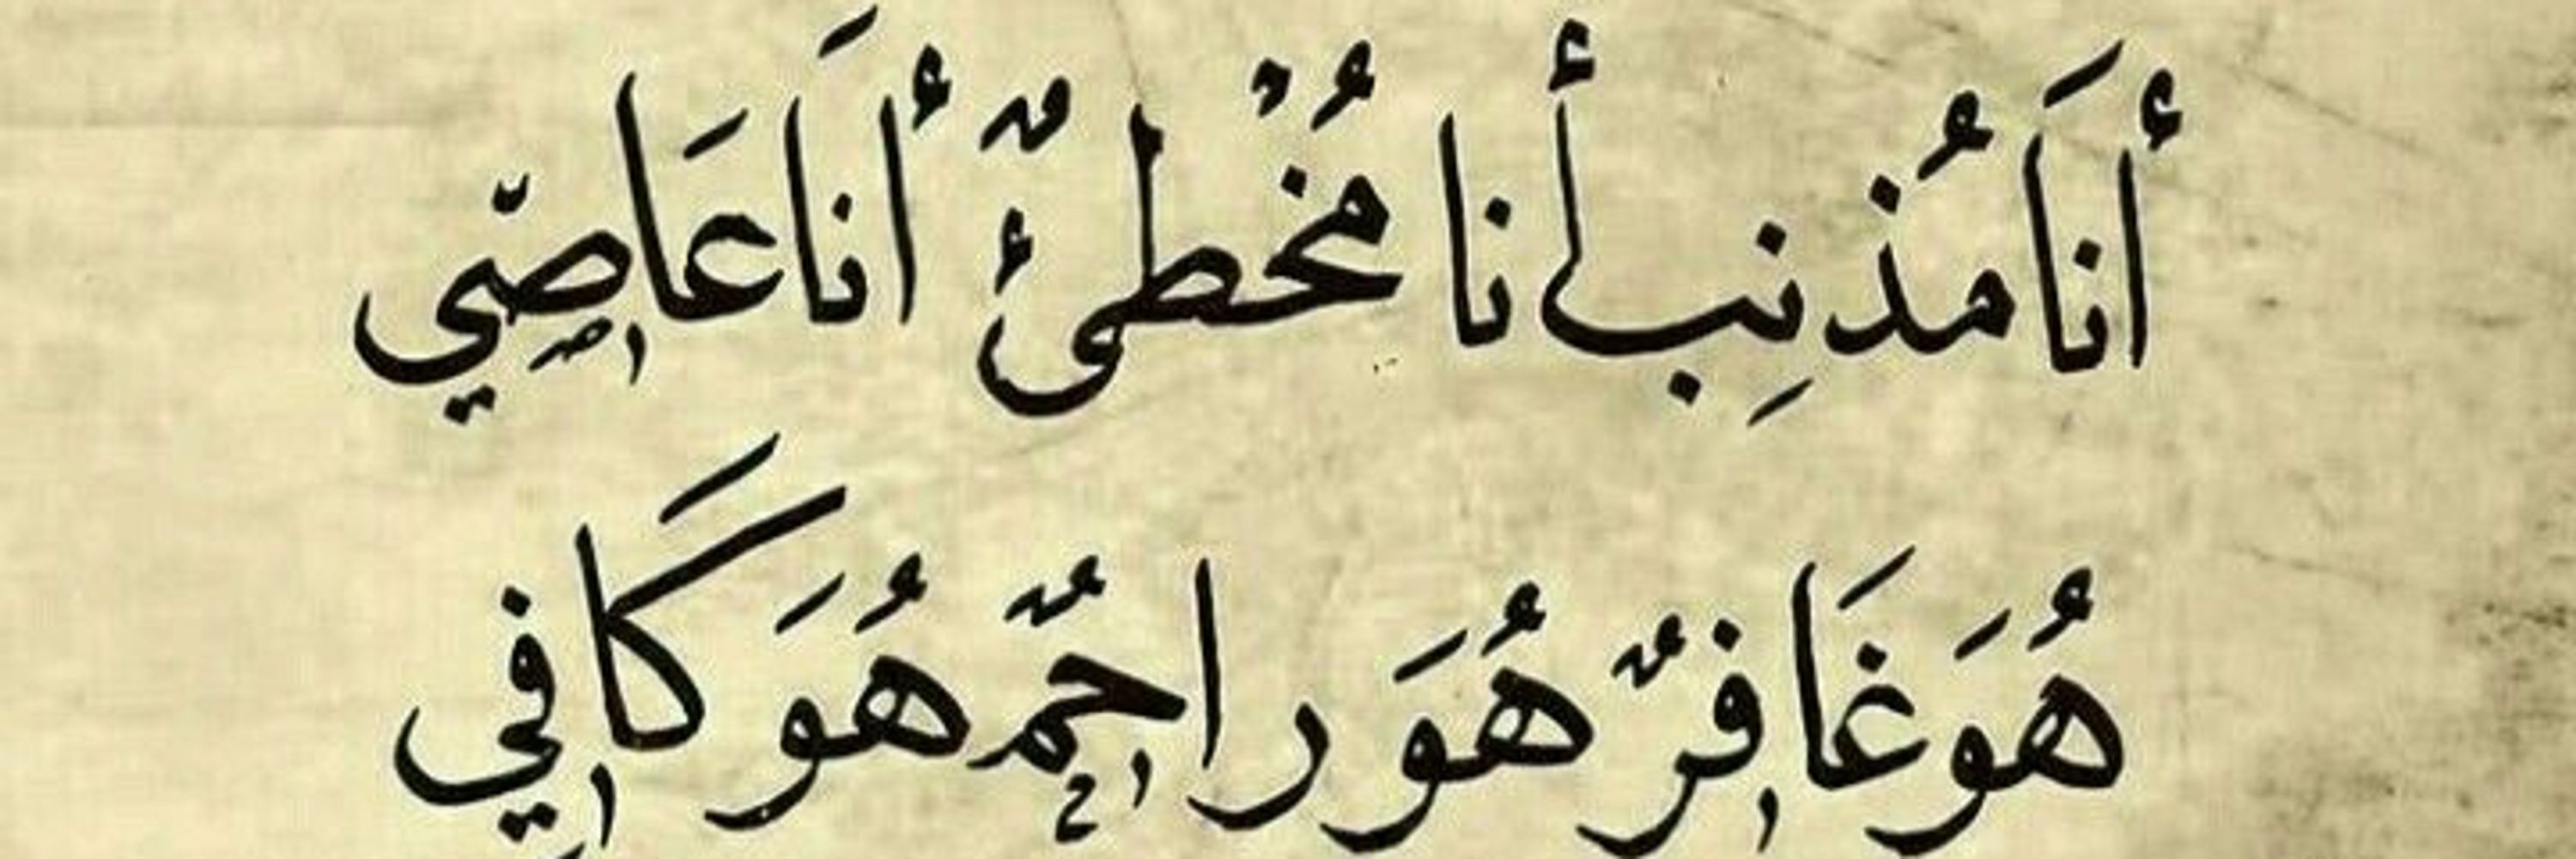 أَنَا مُذنِب أنا مُخْطِئٌ أَنَا عَاصِي
هُوَ غَافِرٌ هُوَ رَاحِمٌ هُوَ كَافِي